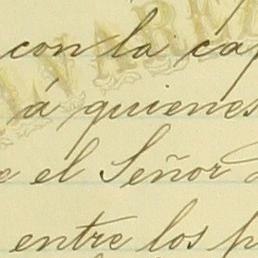 con la cap
á quienes
el Señor
entre los p